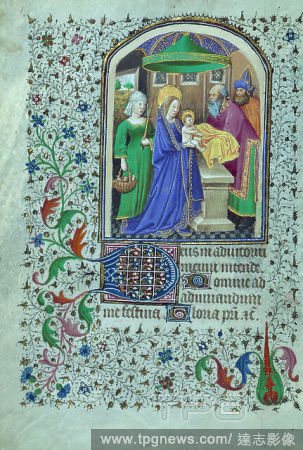 Deus in adiutoriū
meum intende
Domine ad
adiuuandum
me festina Gloria pri et
TPG
www.tpgnews.com/ 達志影像